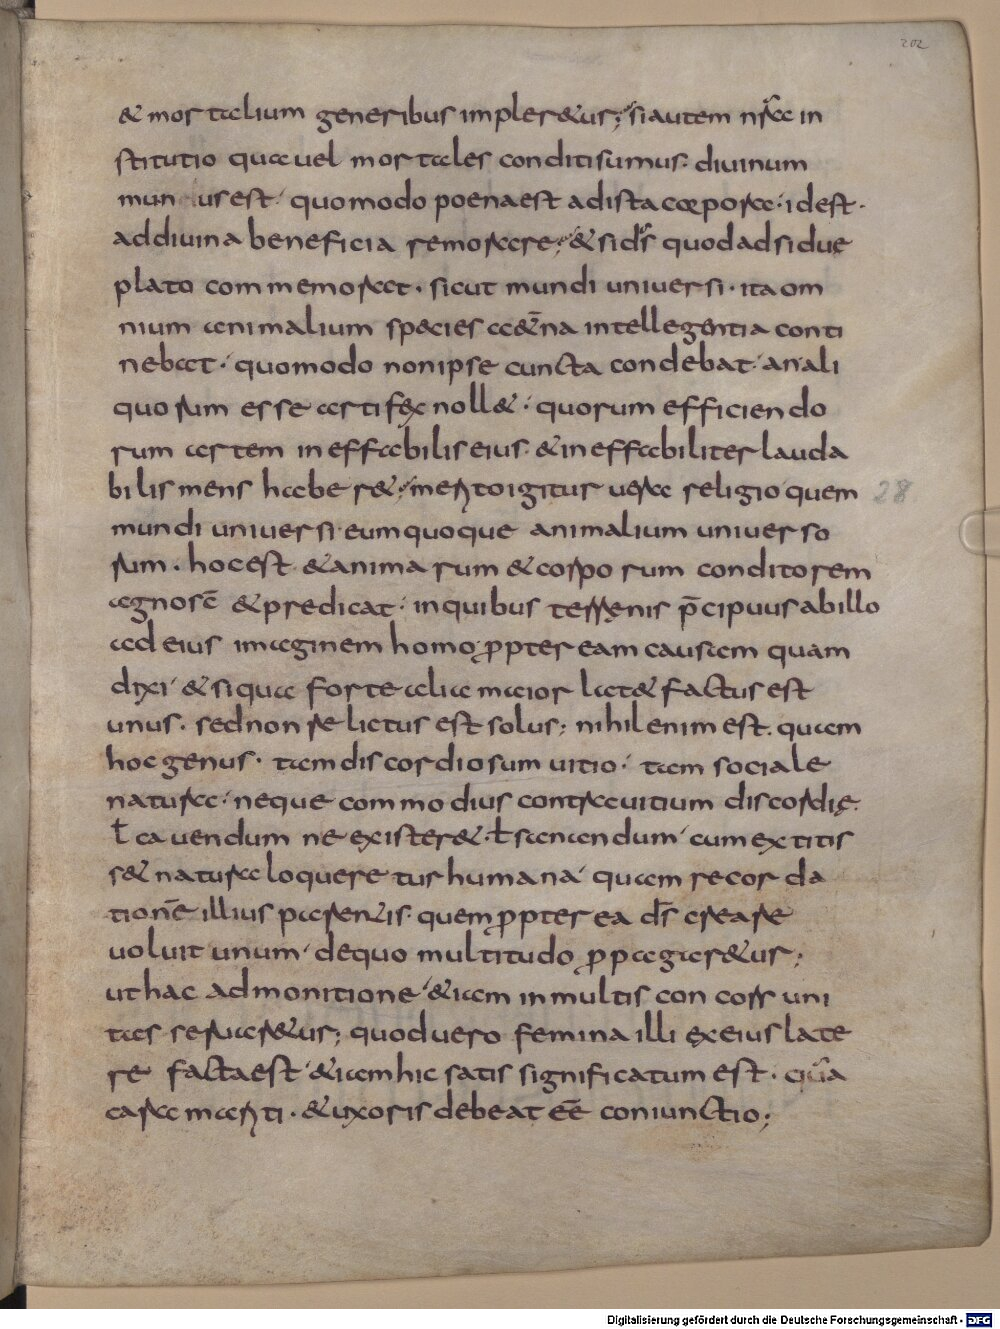 202
& mortalium generibus impler&ur; si autem nr̄a in
stitutio qua uel mortales conditi sumus· diuinum
mun us est· quomodo poena est ad ista corpora· id est·
ad diuina beneficia remeare; & si d̄s quod adsidue
plato commemorat· sicut mundi uniuersi· ita om
nium animalium species a&̄na intellegentia conti
nebat· quomodo non ipse cuncta condebat· an ali
quorum esse artifex noll&· quorum efficiendo
rum artem ineffabilis eius· & ineffabiliter lauda
bilis mens haber&; merito igitur uera religio quem
28
mundi uniuersi eum quoque animalium uniuerso
rum· hoc est & animarum & corporum conditorem
agnosc̄ & predicat· in quibus terrenis p̄cipuus ab illo
ad eius imaginem homo ꝓpter eam causam quam
dixi· & si qua forte alia maior lat& factus est
unus· sed non relictus est solus; nihil enim est quam
hoc genus· tam discordiosum uitio· tam sociale
natura· neque commodius contra uitium discordię
ƚ cauendum ne exister&· ƚ sanandum cum extitis
s& natura loqueretur humana· quam recorda
tionē illius parentis· quem ꝓpter ea d̄s creare
uoluit unum· de quo multitudo ꝓpagar&ur;
ut hac admonitione &iam in multis concors uni
tas seruar&ur; quod uero femina illi ex eius late
re facta est &iam hic satis significatum est· quā
cara mariti· & uxoris debeat eē coniunctio;
Digitalisierung gefördert durch die Deutsche Forschungsgemeinschaft - DFG